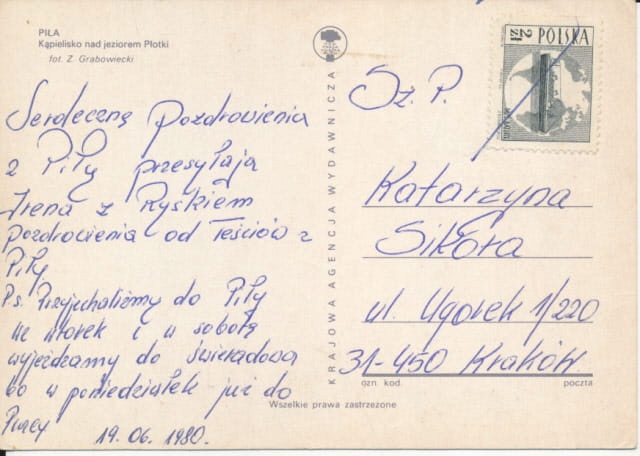 PIŁA
Kąpielisko nad jeziorem Płotki
fot. Z. Grabowiecki
Serdeczne Pozdrowienia
z Piły przesyłają
Irena z Ryśkiem
Pozdrowienia od Teściów z
Piły
Ps. Przyjechaliśmy do Piły
we wtorek i w sobotę
wyjeżdżamy do Świeradowa
bo w poniedziałek już do
Pracy
19.06.1980.
KRAJOWA AGENCJA WYDAWNICZA
2 ZŁ POLSKA
Sz. P.
Katarzyna
Sikora
ul. Ugorek 1/220
31-450 Kraków
ozn. kod. poczta
Wszelkie prawa zastrzeżone